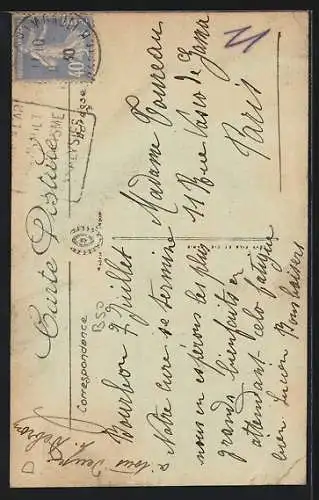 Carte Postale
Correspondance
Adresse
BSD
Bourbon 7 Juillet
Notre cure se termine
nous en espérons les plus
grands bienfaits en
attendant cela fatigue
bien Lucien Bons baisers
à tous
Madame Poureau
11 Rue Vasco de Gama
Paris
40
D